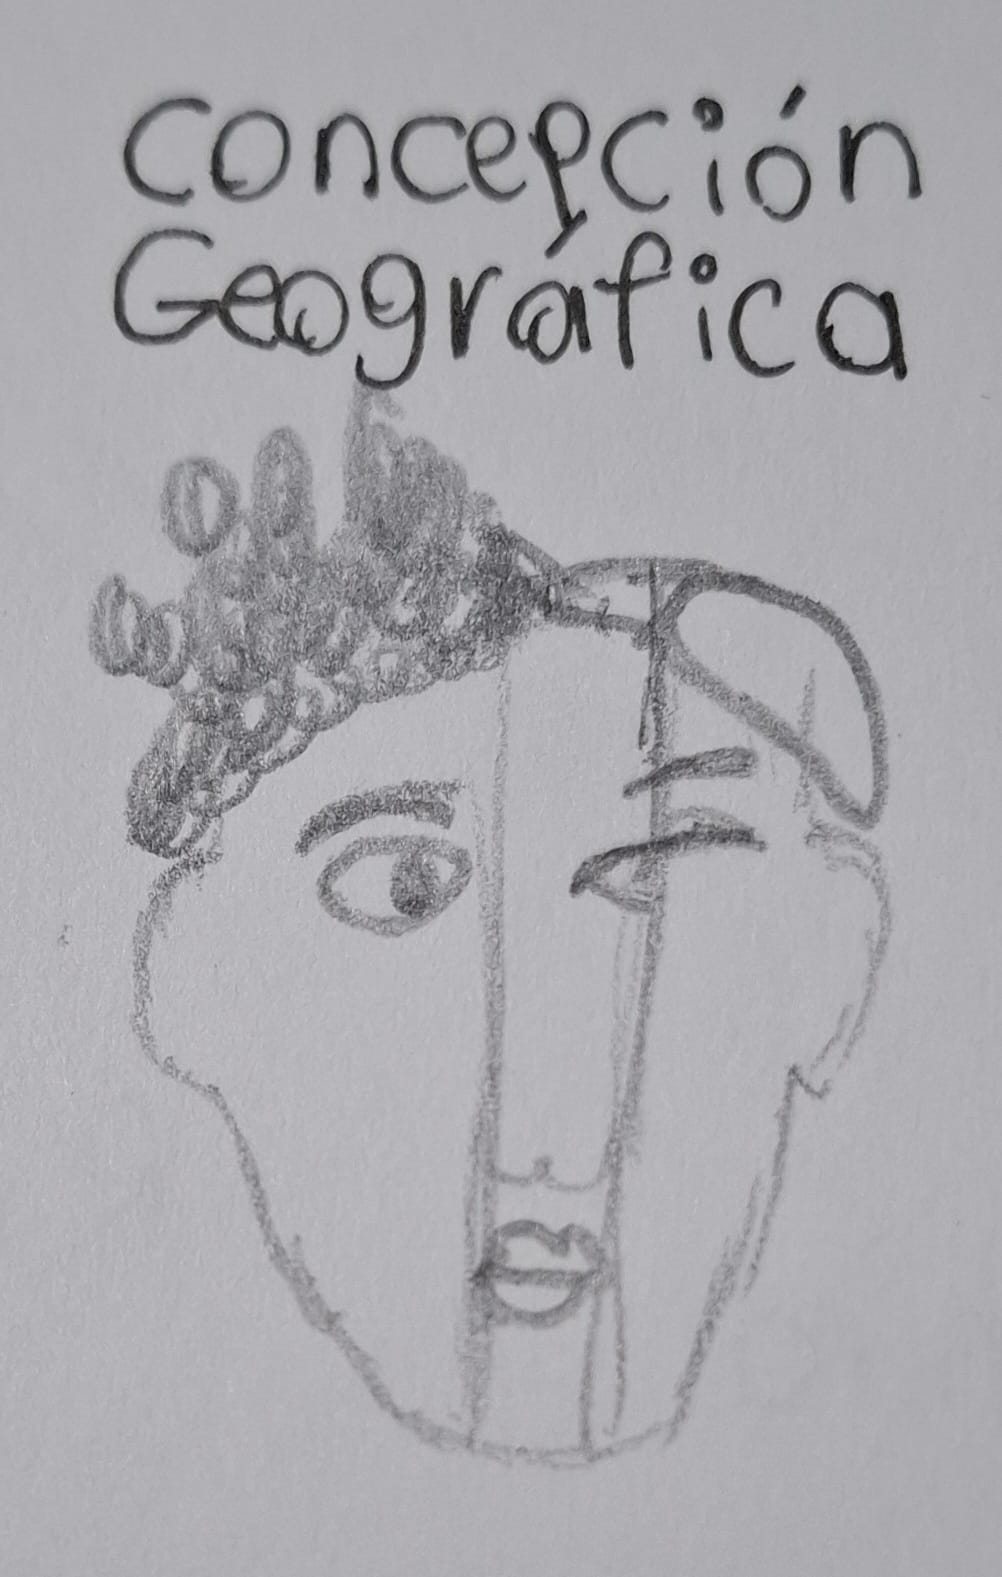 concepción
Geográfica